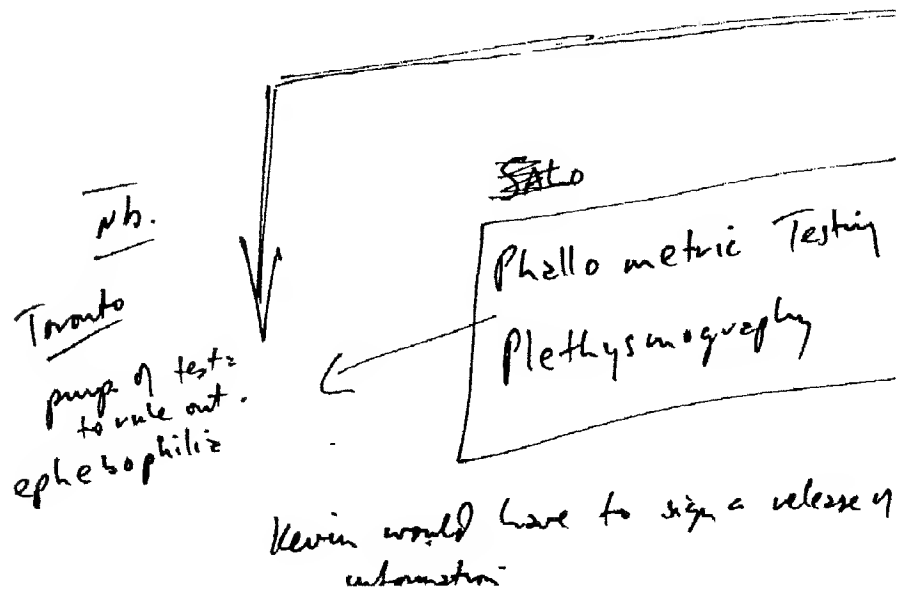 Nb.
Toronto
purp of test =
to rule out.
ephebophilia
Phallo metric Testing
Plethysmography
Kevin would have to sign a release of
information